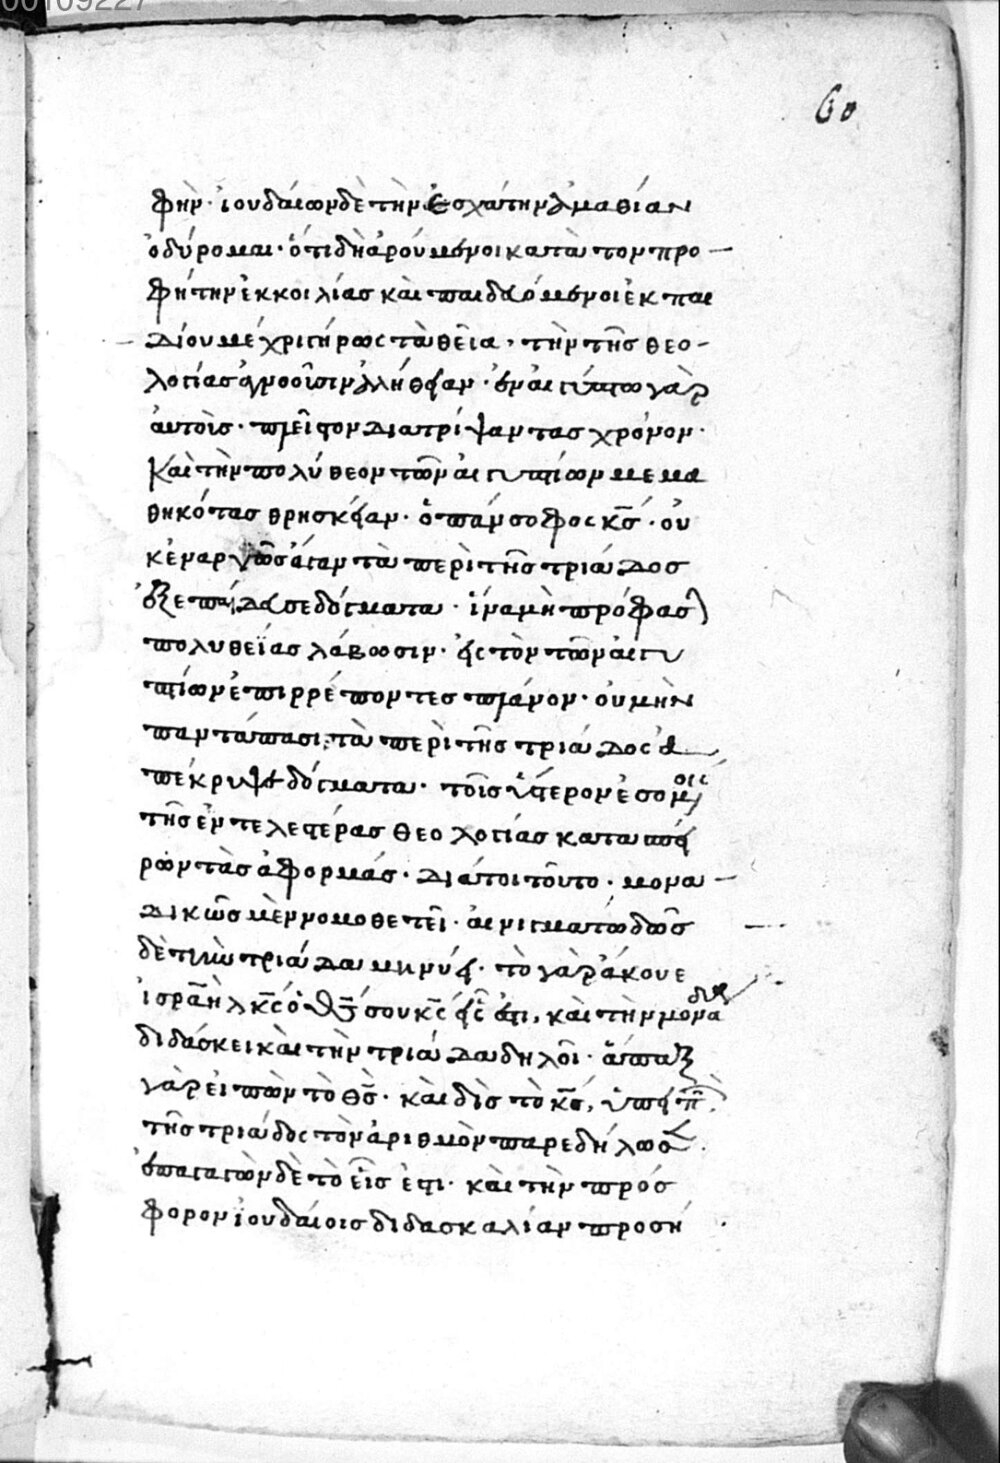 00109227
60
φὴν· ἰουδαίων δὲ τὴν ἐσχάτην ἀμαθίαν
ὀδύρομαι· ὅτι δὴ ἀρούμενοι κατὰ τὸν προ
φήτην ἐκ κοιλίας καὶ παιδευόμενοι ἐκ παι
δίου μέχρι γήρως τὰ θεῖα, τὴν τῆς θεο
λογίας ἀγνοοῦσιν ἀλήθειαν· ἐν αἰγύπτω γὰρ
αὐτοὺς· πλεῖστον διατρίψαντας χρόνον·
καὶ τὴν πολύθεον τῶν αἰγυπτίων μεμα
θηκότας θρησκείαν· ὁ πάνσοφος κ̅ς̅· οὐ
κ ἐναργῶς ἄγαν τὰ περὶ τῆς τριάδος
ἐξεπαίδευσε δόγματα· ἵνα μὴ πρόφασιν
πολυθεΐας λάβωσιν· εἰς τὸν τῶν αἰγυ
πτίων ἐπιρρέποντες πλάνον· οὐ μὴν
παντάπασι τὰ περὶ τῆς τριάδος ἀ
πέκρυψε δόγματα· τοῖς ὕστερον ἐσομένοις
τῆς ἐντελεστέρας θεολογίας κατασπεί
ρων τὰς ἀφορμάς· διάτοι τοῦτο· μονα
δικῶς μὲν νομοθετεῖ· αἰνιγματωδῶς
δὲ τὴν τριάδα μηνύει· τὸ γὰρ ἄκουε
ἰσραὴλ κ̅ς̅ ὁ θ̅ς̅ σου κ̅ς̅ εἷς ἐστι, καὶ τὴν μονάδα
διδάσκει καὶ τὴν τριάδα δηλοῖ· ἅπαξ
γὰρ εἰπὼν τὸ θ̅ς̅· καὶ δὶς τὸ κ̅ς̅,
τῆς τριάδος τὸν ἀριθμὸν παρεδήλωσεν
ἐπαγαγὼν δὲ τὸ εἷς ἐστι· καὶ τὴν πρόσ
φορον ἰουδαίοις διδασκαλίαν προσή